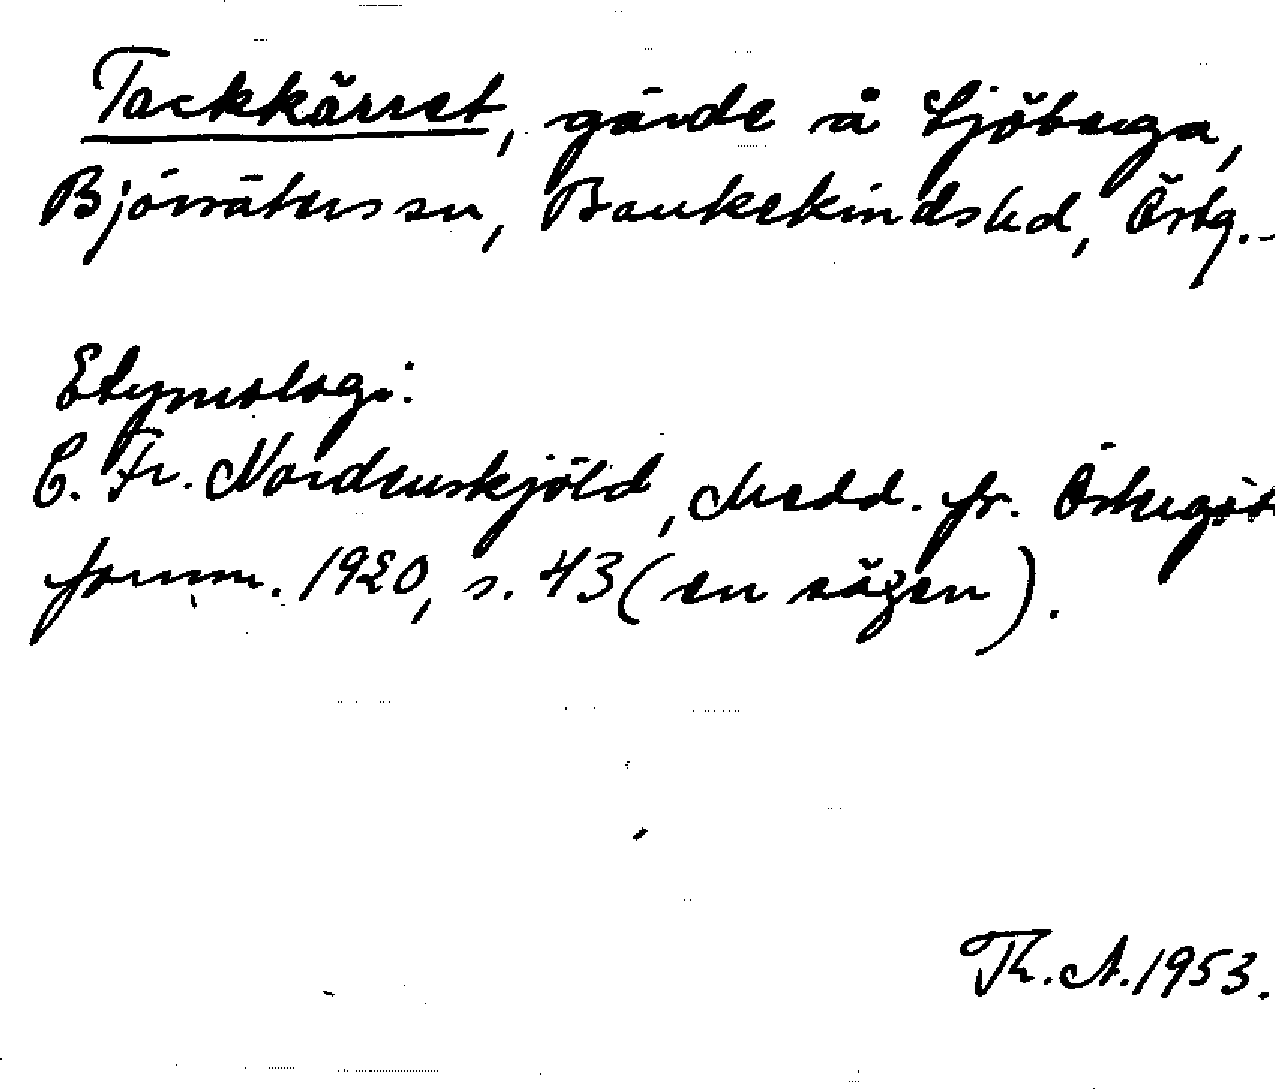 Tackkärret, gärde å Sjöberga,
Björsäters sn, Bankekinds hd, Östg.-
Etymologi:
C. Fr. Nordenskjöld, Medd. fr. Östergöt
fornm. 1920, s. 43 (en sägen).
Th. A. 1953.